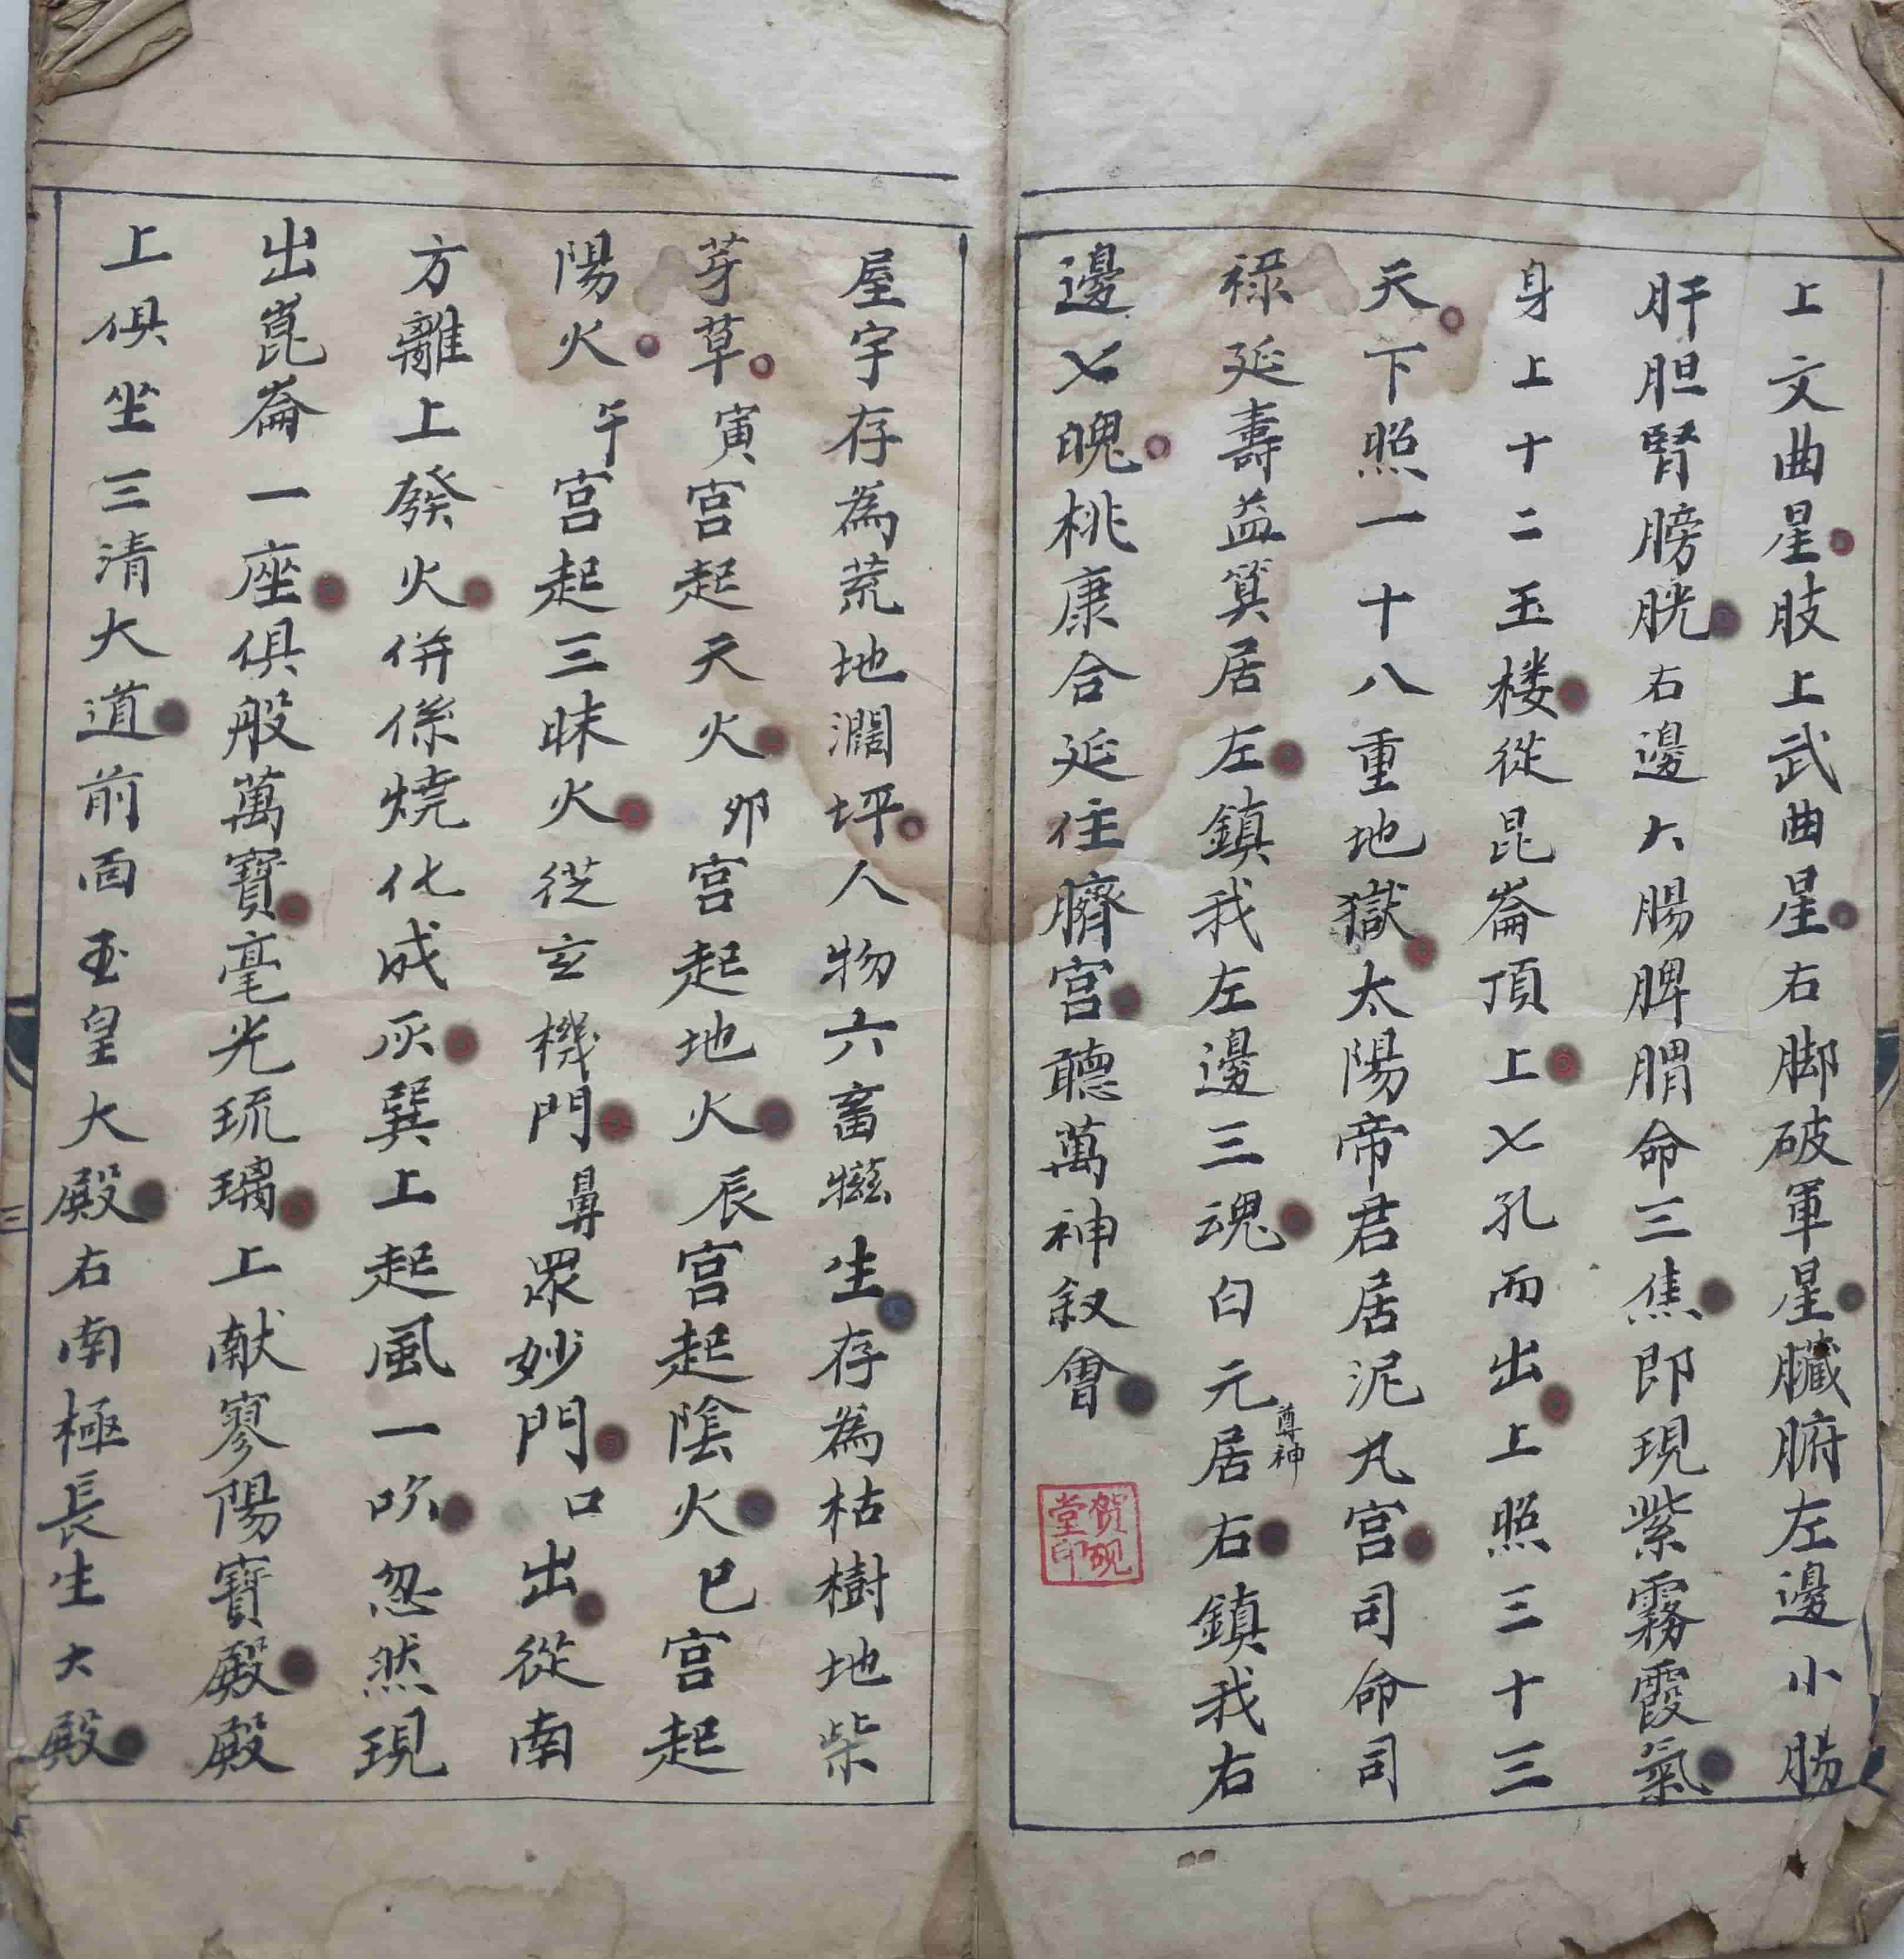 上文曲星肢上武曲星右脚破軍星臟腑左邊小腸
肝胆腎膀胱右邊大腸脾胃命三焦即現紫霧霞氣
身上十二玉楼從昆崙頂上七孔而出上照三十三
天下照一十八重地獄太陽帝君居泥丸宮司命司
祿延壽益算居左鎮我左邊三魂白元居右鎮我右
尊神
邊七魄桃康合延住臍宮聽萬神叙會
贺砚
堂印
屋宇存為荒地濶坪人物六畜牲存為枯樹地柴
芽草寅宮起天火卯宮起地火辰宮起陰火巳宮起
陽火午宮起三昧火從玄機門鼻眾妙門口出從南
方離上發火併係燒化成灰巽上起風一吹忽然現
出崑崙一座俱般萬寶毫光琉璃上献寥陽寶殿殿
上俱坐三清大道前面玉皇大殿右南極長生大殿
三